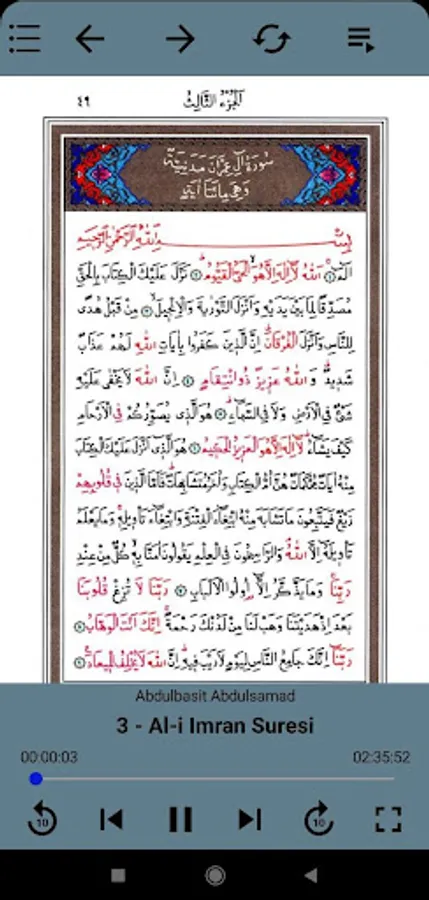 ٤٩ اَلْجُزْءُ الثَّالِثُ
سُورَةُ اٰلِ عِمْرٰنَ مَدَنِيَّةٌ
وَهِيَ مِائَتَا اٰيَةٍ
بِسْمِ اللّٰهِ الرَّحْمٰنِ الرَّحِيمِ
الٓمٓ ۝ اَللّٰهُ لَٓا اِلٰهَ اِلَّا هُوَ الْحَيُّ الْقَيُّومُ ۝ نَزَّلَ عَلَيْكَ الْكِتَابَ بِالْحَقِّ
مُصَدِّقًا لِمَا بَيْنَ يَدَيْهِ وَاَنْزَلَ التَّوْرٰيةَ وَالْاِنْجِيلَ ۝ مِنْ قَبْلُ هُدًى
لِلنَّاسِ وَاَنْزَلَ الْفُرْقَانَ اِنَّ الَّذِينَ كَفَرُوا بِاٰيَاتِ اللّٰهِ لَهُمْ عَذَابٌ
شَدِيدٌ وَاللّٰهُ عَزِيزٌ ذُو انْتِقَامٍ ۝ اِنَّ اللّٰهَ لَا يَخْفٰى عَلَيْهِ
شَيْءٌ فِي الْاَرْضِ وَلَا فِي السَّمَٓاءِ ۝ هُوَ الَّذِي يُصَوِّرُكُمْ فِي الْاَرْحَامِ
كَيْفَ يَشَٓاءُ لَٓا اِلٰهَ اِلَّا هُوَ الْعَزِيزُ الْحَكِيمُ ۝ هُوَ الَّذِٓي اَنْزَلَ عَلَيْكَ الْكِتَابَ
مِنْهُ اٰيَاتٌ مُحْكَمَاتٌ هُنَّ اُمُّ الْكِتَابِ وَاُخَرُ مُتَشَابِهَاتٌ فَاَمَّا الَّذِينَ فِي قُلُوبِهِمْ
زَيْغٌ فَيَتَّبِعُونَ مَا تَشَابَهَ مِنْهُ ابْتِغَٓاءَ الْفِتْنَةِ وَابْتِغَٓاءَ تَأْوِيلِهِ وَمَا يَعْلَمُ
تَأْوِيلَهُٓ اِلَّا اللّٰهُ وَالرَّاسِخُونَ فِي الْعِلْمِ يَقُولُونَ اٰمَنَّا بِهِ كُلٌّ مِنْ عِنْدِ
رَبِّنَا وَمَا يَذَّكَّرُ اِلَّٓا اُولُوا الْاَلْبَابِ ۝ رَبَّنَا لَا تُزِغْ قُلُوبَنَا
بَعْدَ اِذْ هَدَيْتَنَا وَهَبْ لَنَا مِنْ لَدُنْكَ رَحْمَةً اِنَّكَ اَنْتَ الْوَهَّابُ ۝
رَبَّنَٓا اِنَّكَ جَامِعُ النَّاسِ لِيَوْمٍ لَا رَيْبَ فِيهِ اِنَّ اللّٰهَ لَا يُخْلِفُ الْمِيعَادَ ۝
Abdulbasit Abdulsamad
3 - Al-i Imran Suresi
00:00:03 02:35:52
10 10